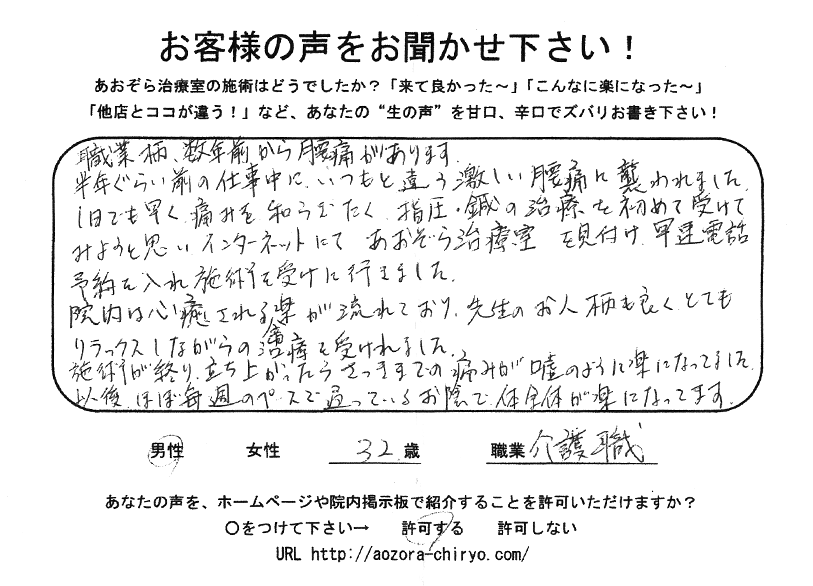 お客様の声をお聞かせ下さい！
あおぞら治療室の施術はどうでしたか？「来て良かった～」「こんなに楽になった～」
「他店とココが違う！」など、あなたの“生の声”を甘口、辛口でズバリお書き下さい！
職業柄、数年前から腰痛があります。
半年ぐらい前の仕事中に、いつもと違う激しい腰痛に襲われました。
1日でも早く痛みを和らげたく、指圧・鍼の治療を初めて受けて
みようと思いインターネットにてあおぞら治療室を見付け、早速電話
予約を入れ施術を受けに行きました。
院内は心癒される楽が流れており、先生のお人柄も良くとても
リラックスしながらの治療を受けれました。
施術が終り、立ち上がったらさっきまでの痛みが嘘のように楽になってました。
以後、ほぼ毎週のペースで通っているお陰で、体全体が楽になってます。
男性 女性 32 歳 職業 介護職
あなたの声を、ホームページや院内掲示板で紹介することを許可いただけますか？
〇をつけて下さい→ 許可する 許可しない
URL http://aozora-chiryo.com/